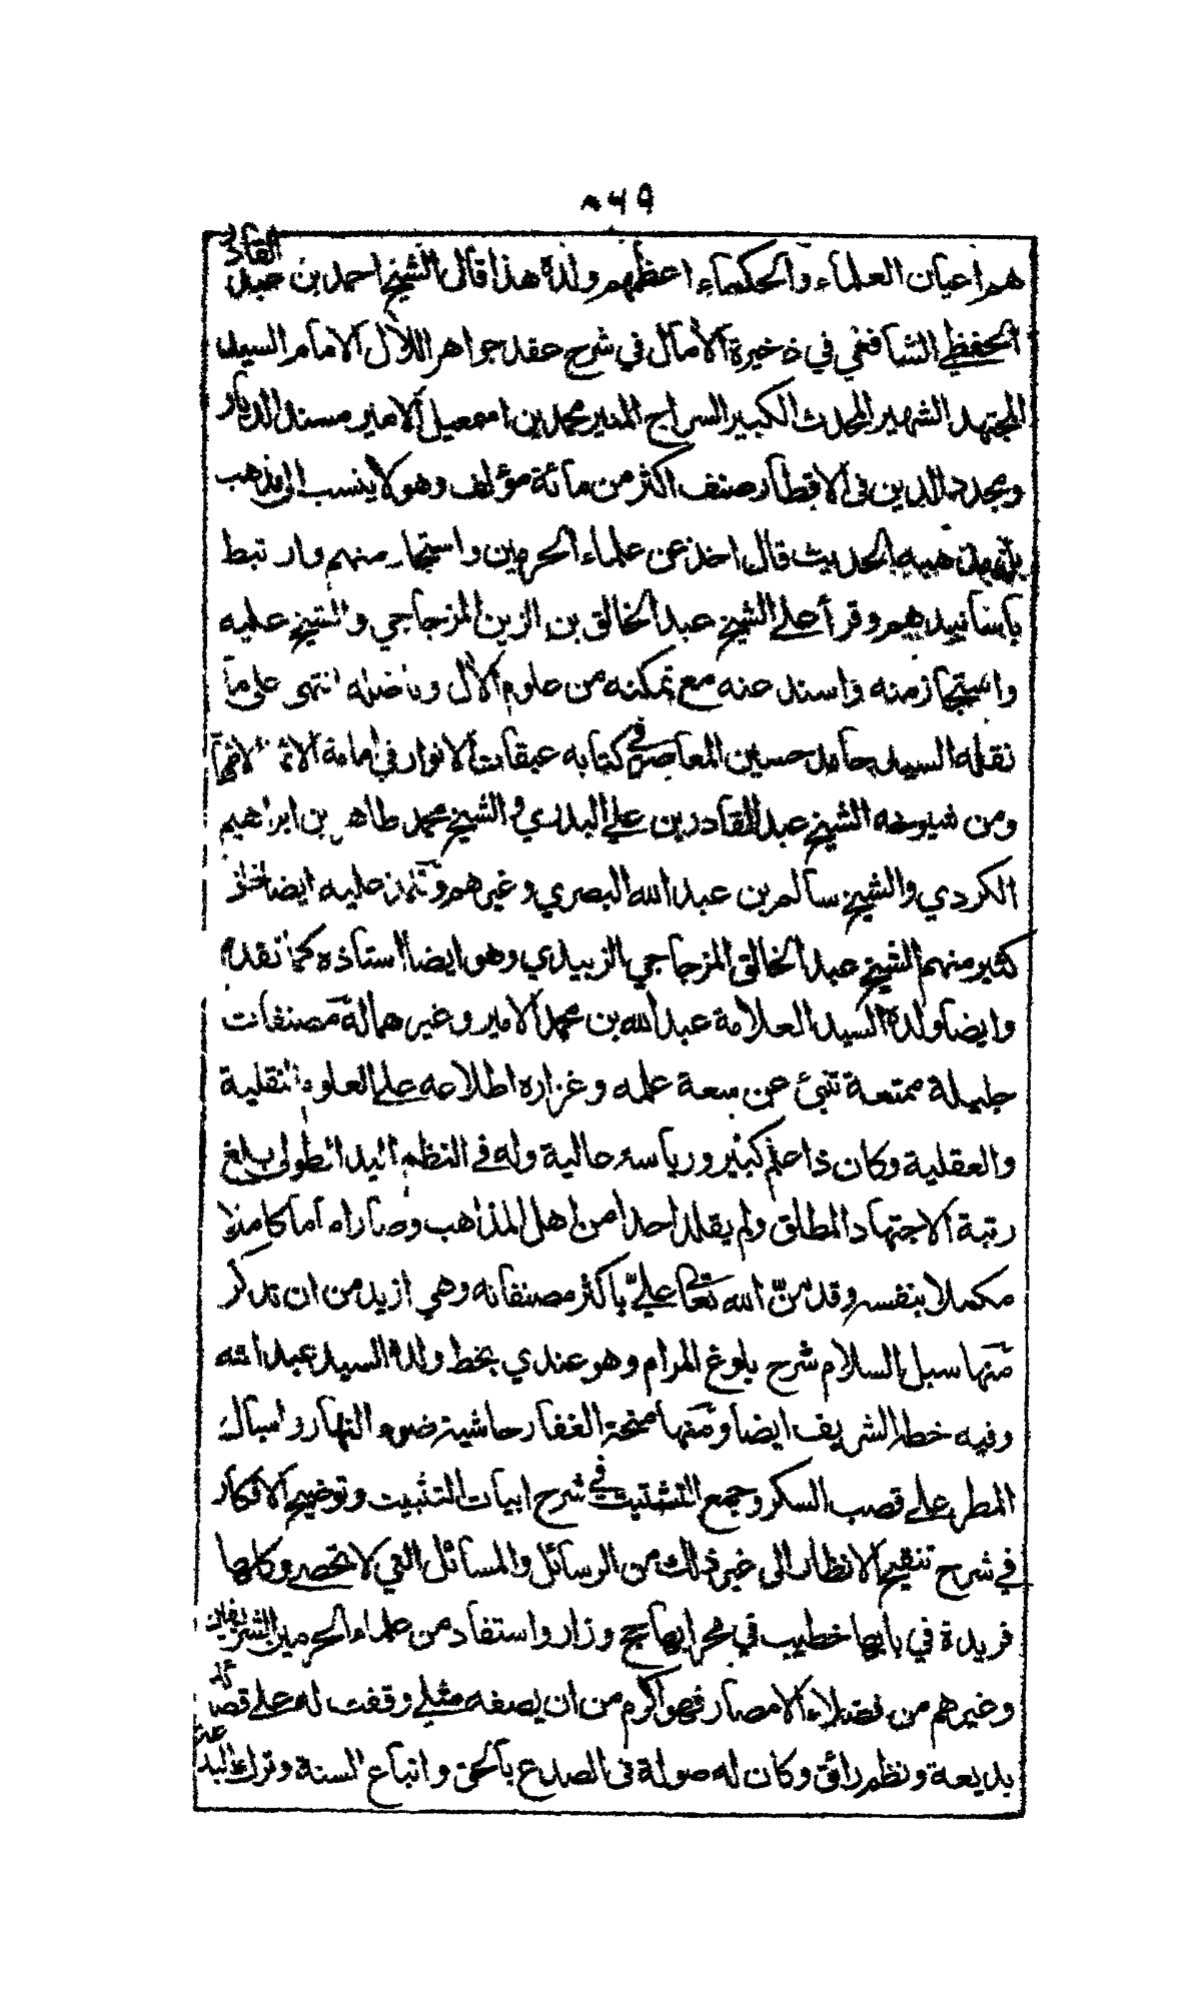 هم اعيان العلماء والحكماء اعظمهم ولده هذا قال الشيخ احمد بن عبد القادر
الحفظي الشافعي في ذخيرة الآمال في شرح عقد جواهر اللآل الامام السيد
المجتهد الشهير المحدث الكبير السراج المنير محمد بن اسمعيل الامير مسند الديار
ومجدد الدين في الاقطار صنف اكثر من مائة مؤلف وهو لا ينسب الى مذهب
بل مذهبه الحديث قال اخذ عن علماء الحرمين واستجاز منهم وارتبط
باسانيدهم وقرأ على الشيخ عبد الخالق بن الزين المزجاجي والشيخ عليه
واستجاز منه واسند عنه مع تمكنه من علوم الآل وتأصله انتهى على ما
نقله السيد حامد حسين المعاصر في كتابه عبقات الانوار في امامة الائمة الاطهار
ومن شيوخه الشيخ عبد القادر بن علي البدري والشيخ محمد طاهر بن ابراهيم
الكردي والشيخ سالم بن عبد الله البصري وغيرهم وتلمذ عليه ايضا خلق
كثير منهم الشيخ عبد الخالق المزجاجي الزبيدي وهو ايضا استاذه كما تقدم
وايضا ولده السيد العلامة عبد الله بن محمد الامير وغيرهما له مصنفات
جليلة ممتعة تنبئ عن سعة علمه وغزارة اطلاعه على العلوم النقلية
والعقلية وكان ذا علم كبير ورياسة عالية وله في النظم اليد الطولى بلغ
رتبة الاجتهاد المطلق ولم يقلد احدا من اهل المذاهب وصار اماما كاملا
مكملا بنفسه وقد منّ الله تعالى عليّ باكثر مصنفاته وهي ازيد من ان تذكر
منها سبل السلام شرح بلوغ المرام وهو عندي بخط ولده السيد عبد الله
وفيه خطه الشريف ايضا ومنها منحة الغفار حاشية ضوء النهار واسبال
المطر على قصب السكر وجمع التشتيت في شرح ابيات التثبيت وتوضيح الافكار
في شرح تنقيح الانظار الى غير ذلك من الرسائل والمسائل التي لا تحصى وكلها
فريدة في بابها خطيب في محرابها حج وزار واستفاد من علماء الحرمين الشريفين
وغيرهم من فضلاء الامصار فهو اكرم من ان يصفه مثلي وقفت له على قصائد
بديعة ونظم رائق وكان له صولة في الصدع بالحق واتباع السنة وترك البدعة